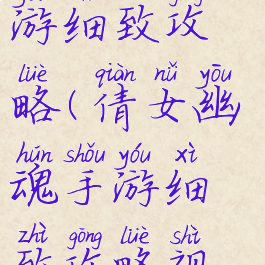 游细致攻
lüè qiàn nǚ yōu
略(倩女幽
hún shǒu yóu xì
魂手游细
zhì gōng lüè shì
致攻略视